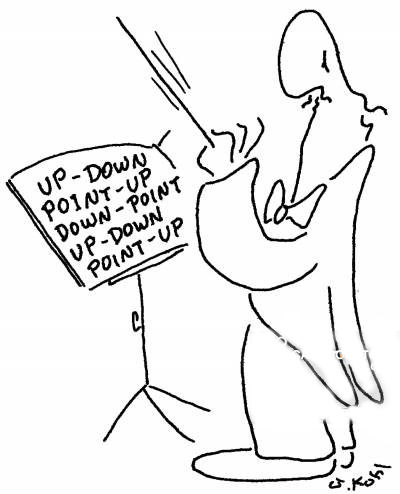 UP-DOWN
POINT-UP
DOWN-POINT
UP-DOWN
POINT-UP